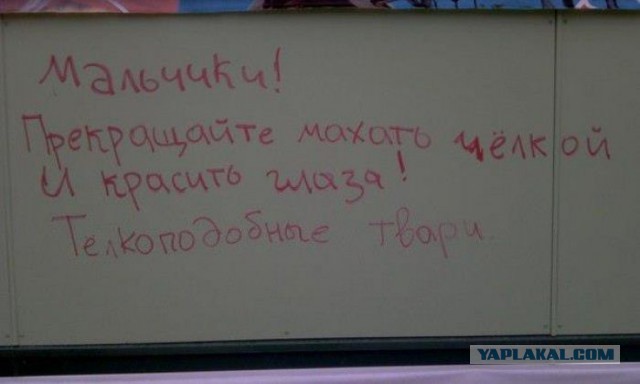 Мальчики!
Прекращайте махать чёлкой
И красить глаза!
Тёлкоподобные твари.
YAPLAKAL.COM